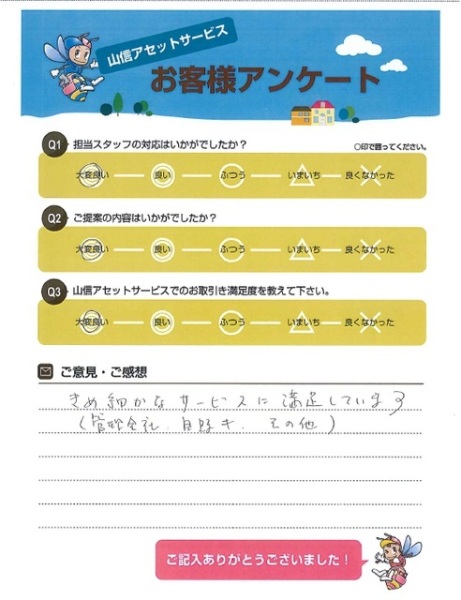 山信アセットサービス
お客様アンケート
Q1 担当スタッフの対応はいかがでしたか？ ○印で囲ってください。
大変良い 良い ふつう いまいち 良くなかった
Q2 ご提案の内容はいかがでしたか？
大変良い 良い ふつう いまいち 良くなかった
Q3 山信アセットサービスでのお取引き満足度を教えて下さい。
大変良い 良い ふつう いまいち 良くなかった
ご意見・ご感想
きめ細かなサービスに満足しています
(管理会社、 その他)
ご記入ありがとうございました！